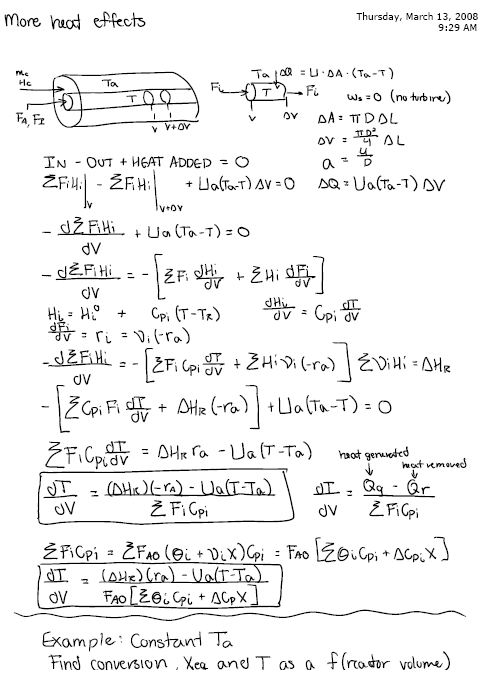 More heat effects
Thursday, March 13, 2008
9:29 AM
mc
Hc
Ta
T
FA, FI
V V+ΔV
Ta ΔQ = U·ΔA·(Ta-T)
Fi T Fi
V ΔV
ws=0 (no turbine)
ΔA = πDΔL
ΔV = πD²/4 ΔL
a = 4/D
IN - OUT + HEAT ADDED = 0
ΣFiHi|V - ΣFiHi|V+ΔV + Ua(Ta-T)ΔV=0 ΔQ=Ua(Ta-T)ΔV
- dΣFiHi/dV + Ua(Ta-T)=0
- dΣFiHi/dV = -[ΣFi dHi/dV + ΣHi dFi/dV]
Hi = Hi° + Cpi(T-TR) dHi/dV = Cpi dT/dV
dFi/dV = ri = νi(-ra)
- dΣFiHi/dV = -[ΣFiCpi dT/dV + ΣHiνi(-ra)] ΣνiHi = ΔHR
-[ΣCpiFi dT/dV + ΔHR(-ra)] + Ua(Ta-T) = 0
ΣFiCpi dT/dV = ΔHR ra - Ua(T-Ta)
heat generated
heat removed
dT/dV = (ΔHR)(-rA) - Ua(T-Ta) / ΣFiCpi
dT/dV = Qg - Qr / ΣFiCpi
ΣFiCpi = ΣFAO(Θi + νiX)Cpi = FAO[ΣΘiCpi + ΔCpX]
dT/dV = (ΔHR)(ra) - Ua(T-Ta) / FAO[ΣΘiCpi + ΔCpX]
Example: Constant Ta
Find conversion, Xeq and T as a f(reactor volume)